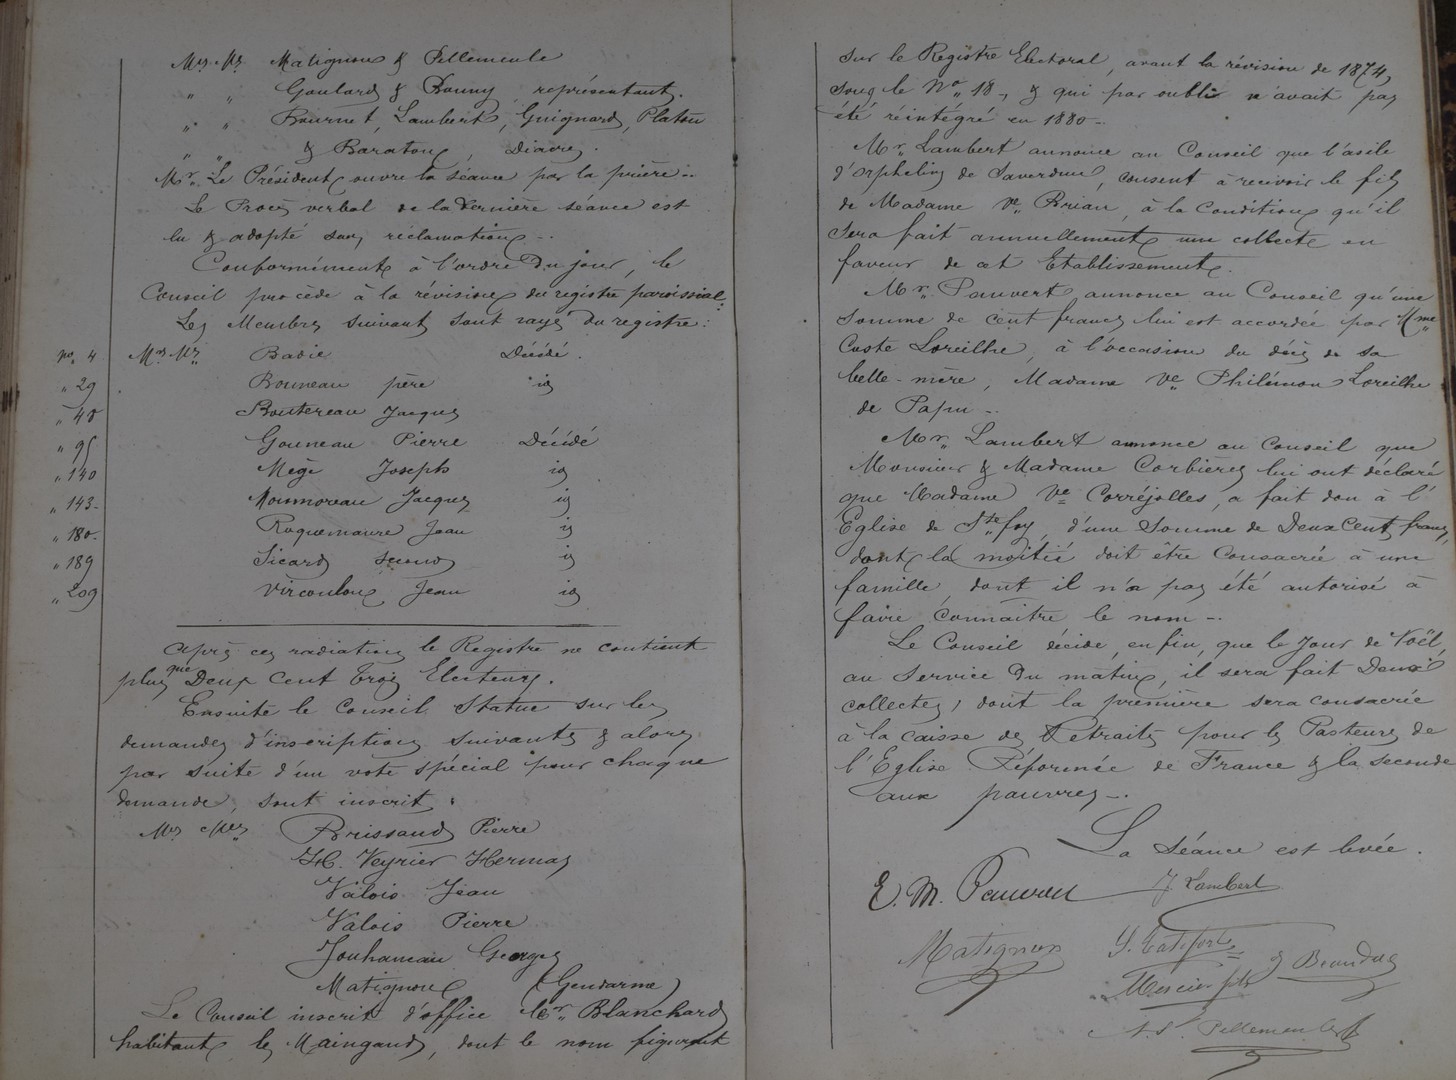 Mrs Mrs Matignon & Pellemeule
" " Goulard & Bonny représentant.
" " Bournet, Lambert, Guignard, Platon
" " & Baraton, Diacres.
Mr. Le Président ouvre la séance par la prière.
Le Procès verbal de la dernière séance est
lu & adopté sans réclamation.
Conformément à l'ordre du jour, le
Conseil procède à la révision du registre paroissial.
Les Membres suivant sont rayés du registre:
No. 4 Mrs Mrs Badie Décédé.
" 29 Bonneau père id
" 48 Boutereau Jacques
" 95 Gouneau Pierre Décédé
" 140 Mège Joseph id
" 143 Monmoreau Jacques id
" 180 Roquemaure Jean id
" 189 Sicard Second id
" 209 Vircoulon Jean id
Après ces radiations le Registre ne contient
plus que Deux Cent trois Electeurs.
Ensuite le Conseil Statue sur les
demandes d'inscriptions suivantes & alors
par suite d'un vote spécial pour chaque
demande, sont inscrit:
Mrs Mrs Brissaud Pierre
H. Veyrier Hermas
Valois Jean
Valois Pierre
Jouhaneau Georges
Matignon (Gendarme)
Le Conseil inscrit d'office Mr. Blanchard
habitant les Maingauds, dont le nom figurait
sur le Registre Electoral, avant la révision de 1874,
sous le No. 18, & qui par oubli n'avait pas
été réintégré en 1880.
Mr. Lambert annonce au Conseil que l'asile
d'orphelins de Saverdun, consent à recevoir le fils
de Madame Ve. Brian, à la condition qu'il
sera fait annuellement une collecte en
faveur de cet Etablissement.
Mr. Pauvert annonce au Conseil qu'une
somme de cent francs lui est accordée par Mme
Coste Loreilhe, à l'occasion du décès de sa
belle-mère, Madame Ve Philémon Loreilhe
de Papu.
Mr. Lambert annonce au Conseil que
Monsieur & Madame Corbières lui ont déclaré
que Madame Ve Corréjolles, a fait don à l'
Eglise de Ste foy, d'une Somme de Deux Cent francs,
dont la moitié doit être Consacrée à une
famille, dont il n'a pas été autorisé à
faire connaître le nom.
Le Conseil décide, enfin, que le Jour de Noël,
au Service du matin, il sera fait Deux
collectes, dont la première sera consacrée
à la caisse de Retraites pour les Pasteurs de
l'Eglise Réformée de France & la seconde
aux pauvres.
La Séance est levée.
E. M. Pauvert J. Lambert
Matignon
Mercier fils
Pellemeule